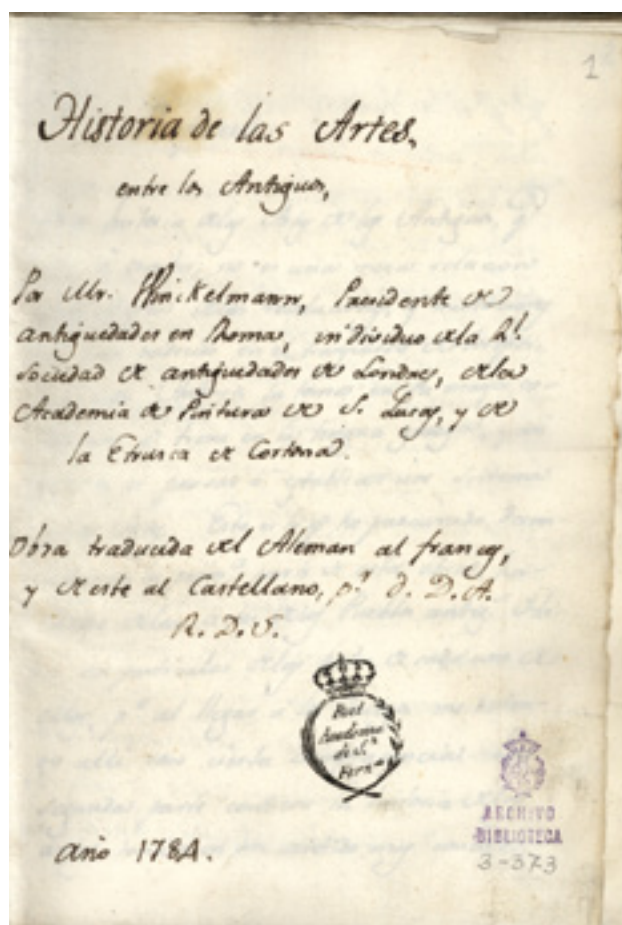 1
Historia de las Artes,
entre los Antiguos,
Por Mr. Winckelmann, Presidente de
antiguedades en Roma, individuo de la Rl.
Sociedad de antiguedades de Londres, de la
Academia de Pintura de S. Lucas, y de
la Etrusca de Cortona.
Obra traducida del Aleman al frances,
y de este al Castellano, pr. d. D. A.
R. D. S.
Real
Academia
de Sn.
Fern.do
ARCHIVO
BIBLIOTECA
3-373
Año 1784.